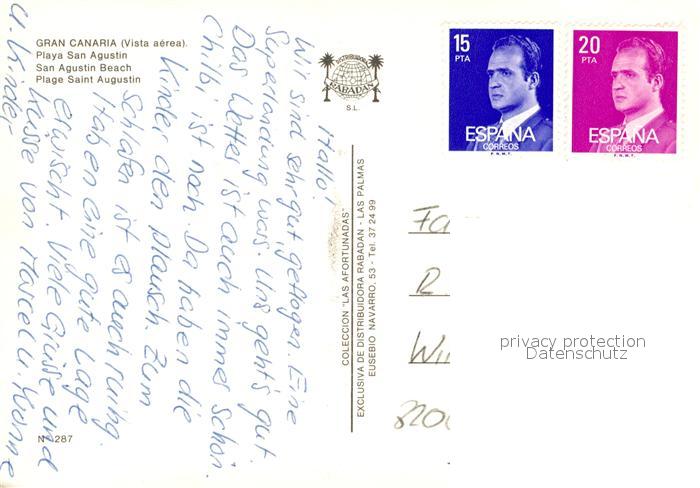 GRAN CANARIA (Vista aérea).
Playa San Agustin
San Agustin Beach
Plage Saint Augustin
DISTRIBUIDORA
RABADAN
S.L.
15
PTA
ESPAÑA
CORREOS
F.N.M.T.
20
PTA
ESPAÑA
CORREOS
F.N.M.T.
Hallo!
Wir sind sehr gut geflogen. Eine
Superlandung was. Uns geht's gut.
Das Wetter ist auch immer schön.
Chilbi ist noch. Da haben die
Kinder den Plausch. Zum
Schlafen ist es auch ruhig.
Haben eine gute Lage
erwischt. Viele Grüsse und
Küsse von Marcel u.
u. Kinder
COLECCION "LAS AFORTUNADAS"
EXCLUSIVA DE DISTRIBUIDORA RABADAN - LAS PALMAS
EUSEBIO NAVARRO, 53 - Tel. 37 24 99
Fa
R
820
privacy protection
Datenschutz
N.º 287